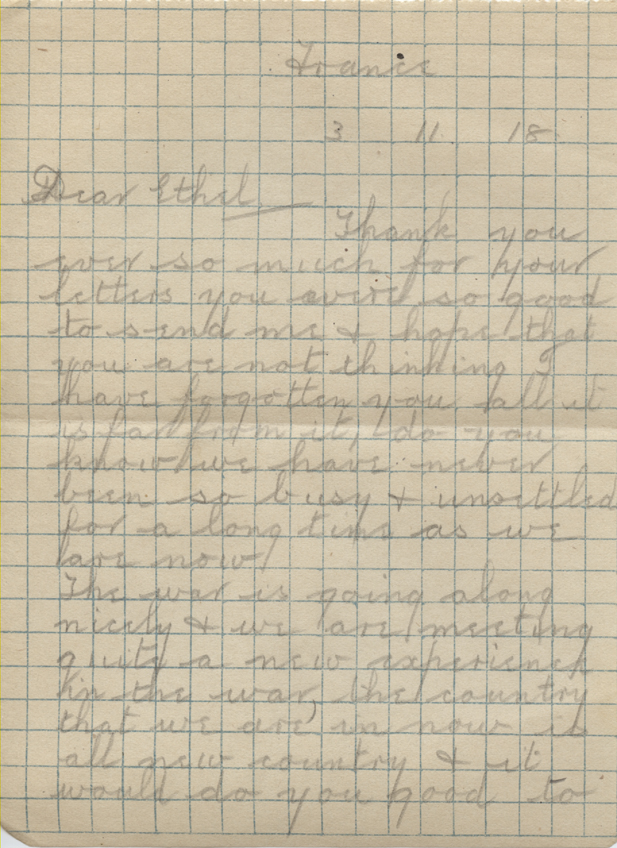 France
3 11 18
Dear Ethel
Thank you
ever so much for your
letters you were so good
to send me & hope that
you are not thinking I
have forgotten you all it
is far from it, do you
know we have never
been so busy & unsettled
for a long time as we
are now.
The war is going along
nicely & we are meeting
quite a new experience
in the war, the country
that we are in now is
all new country & it
would do you good to